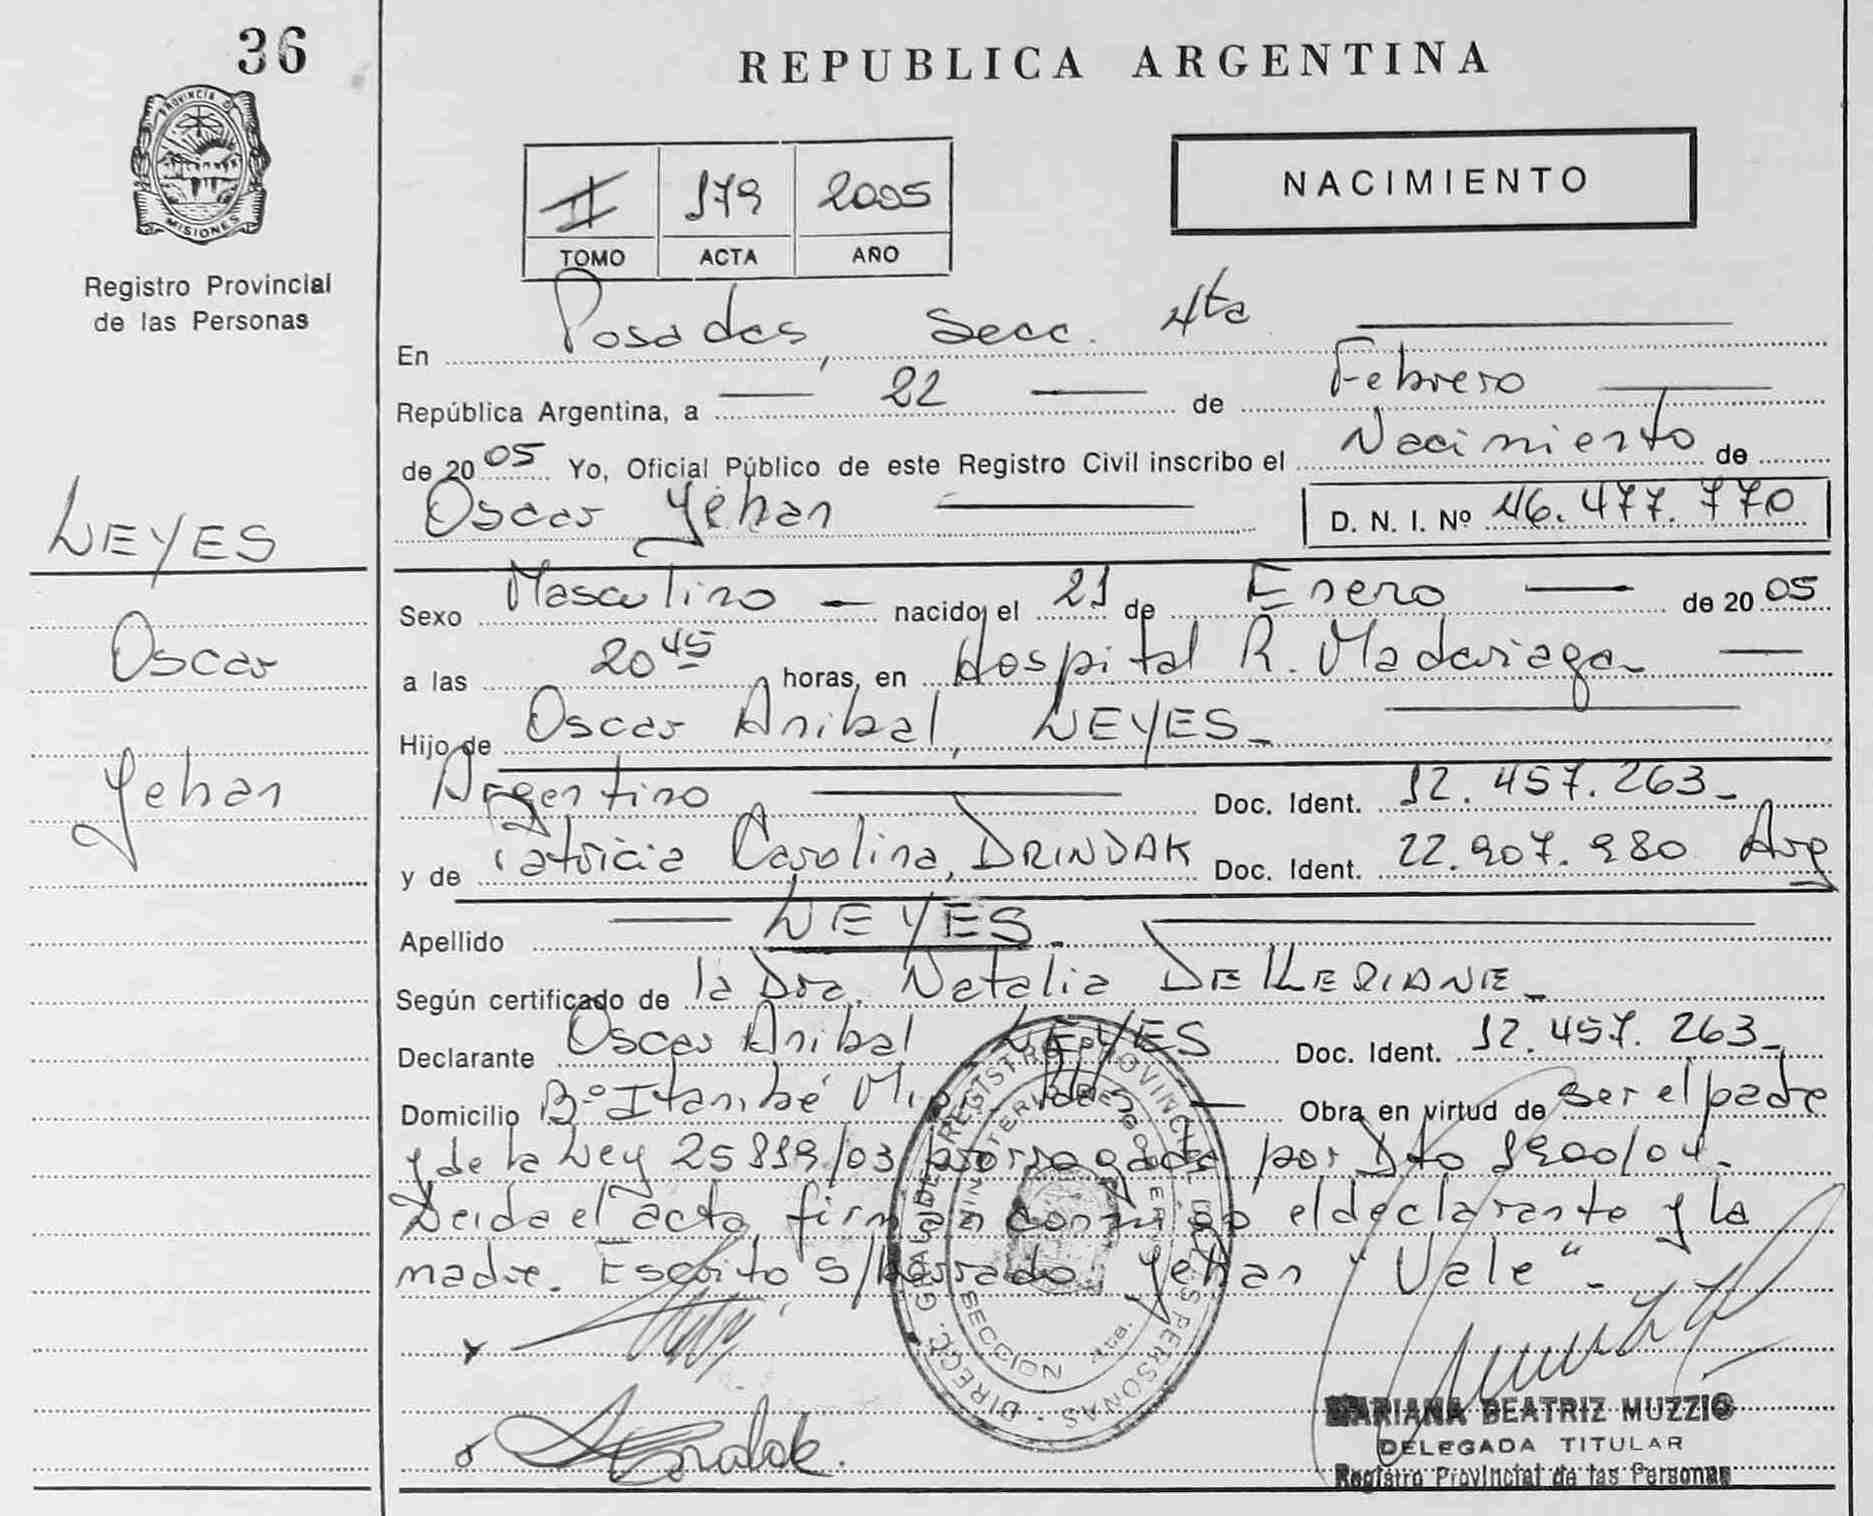 36
PROVINCIA D
MISIONES
Registro Provincial
de las Personas
LEYES
Oscar
Yehan
REPUBLICA ARGENTINA
II 179 2005
TOMO ACTA AÑO
NACIMIENTO
En Posadas, Secc. 4ta
República Argentina, a 22 de Febrero
de 2005 Yo, Oficial Público de este Registro Civil inscribo el Nacimiento de
Oscar Yehan D. N. I. Nº 46.477.770
Sexo Masculino nacido el 21 de Enero de 2005
a las 20 45 horas, en Hospital R. Madariaga
Hijo de Oscar Anibal, LEYES
Argentino Doc. Ident. 12.457.263
y de Patricia Carolina, DRINDAK Doc. Ident. 22.907.980 Arg
Apellido LEYES
Según certificado de la Dra. Natalia
Declarante Oscar Anibal LEYES Doc. Ident. 12.457.263
Domicilio Bº Itambé Mini Obra en virtud de ser el padre
y de la Ley 25819/03 prorrogada por Dto 1900/04.
Leida el acta firman conmigo el declarante y la
madre. Escrito s/borrado Yehan "Vale"
DIRECC. GRAL. DEL REGISTRO PROVINCIAL DE LAS PERSONAS
MINISTERIO DE GOBIERNO
SECCION 4ta.
MARIANA BEATRIZ MUZZIO
DELEGADA TITULAR
Registro Provincial de las Personas